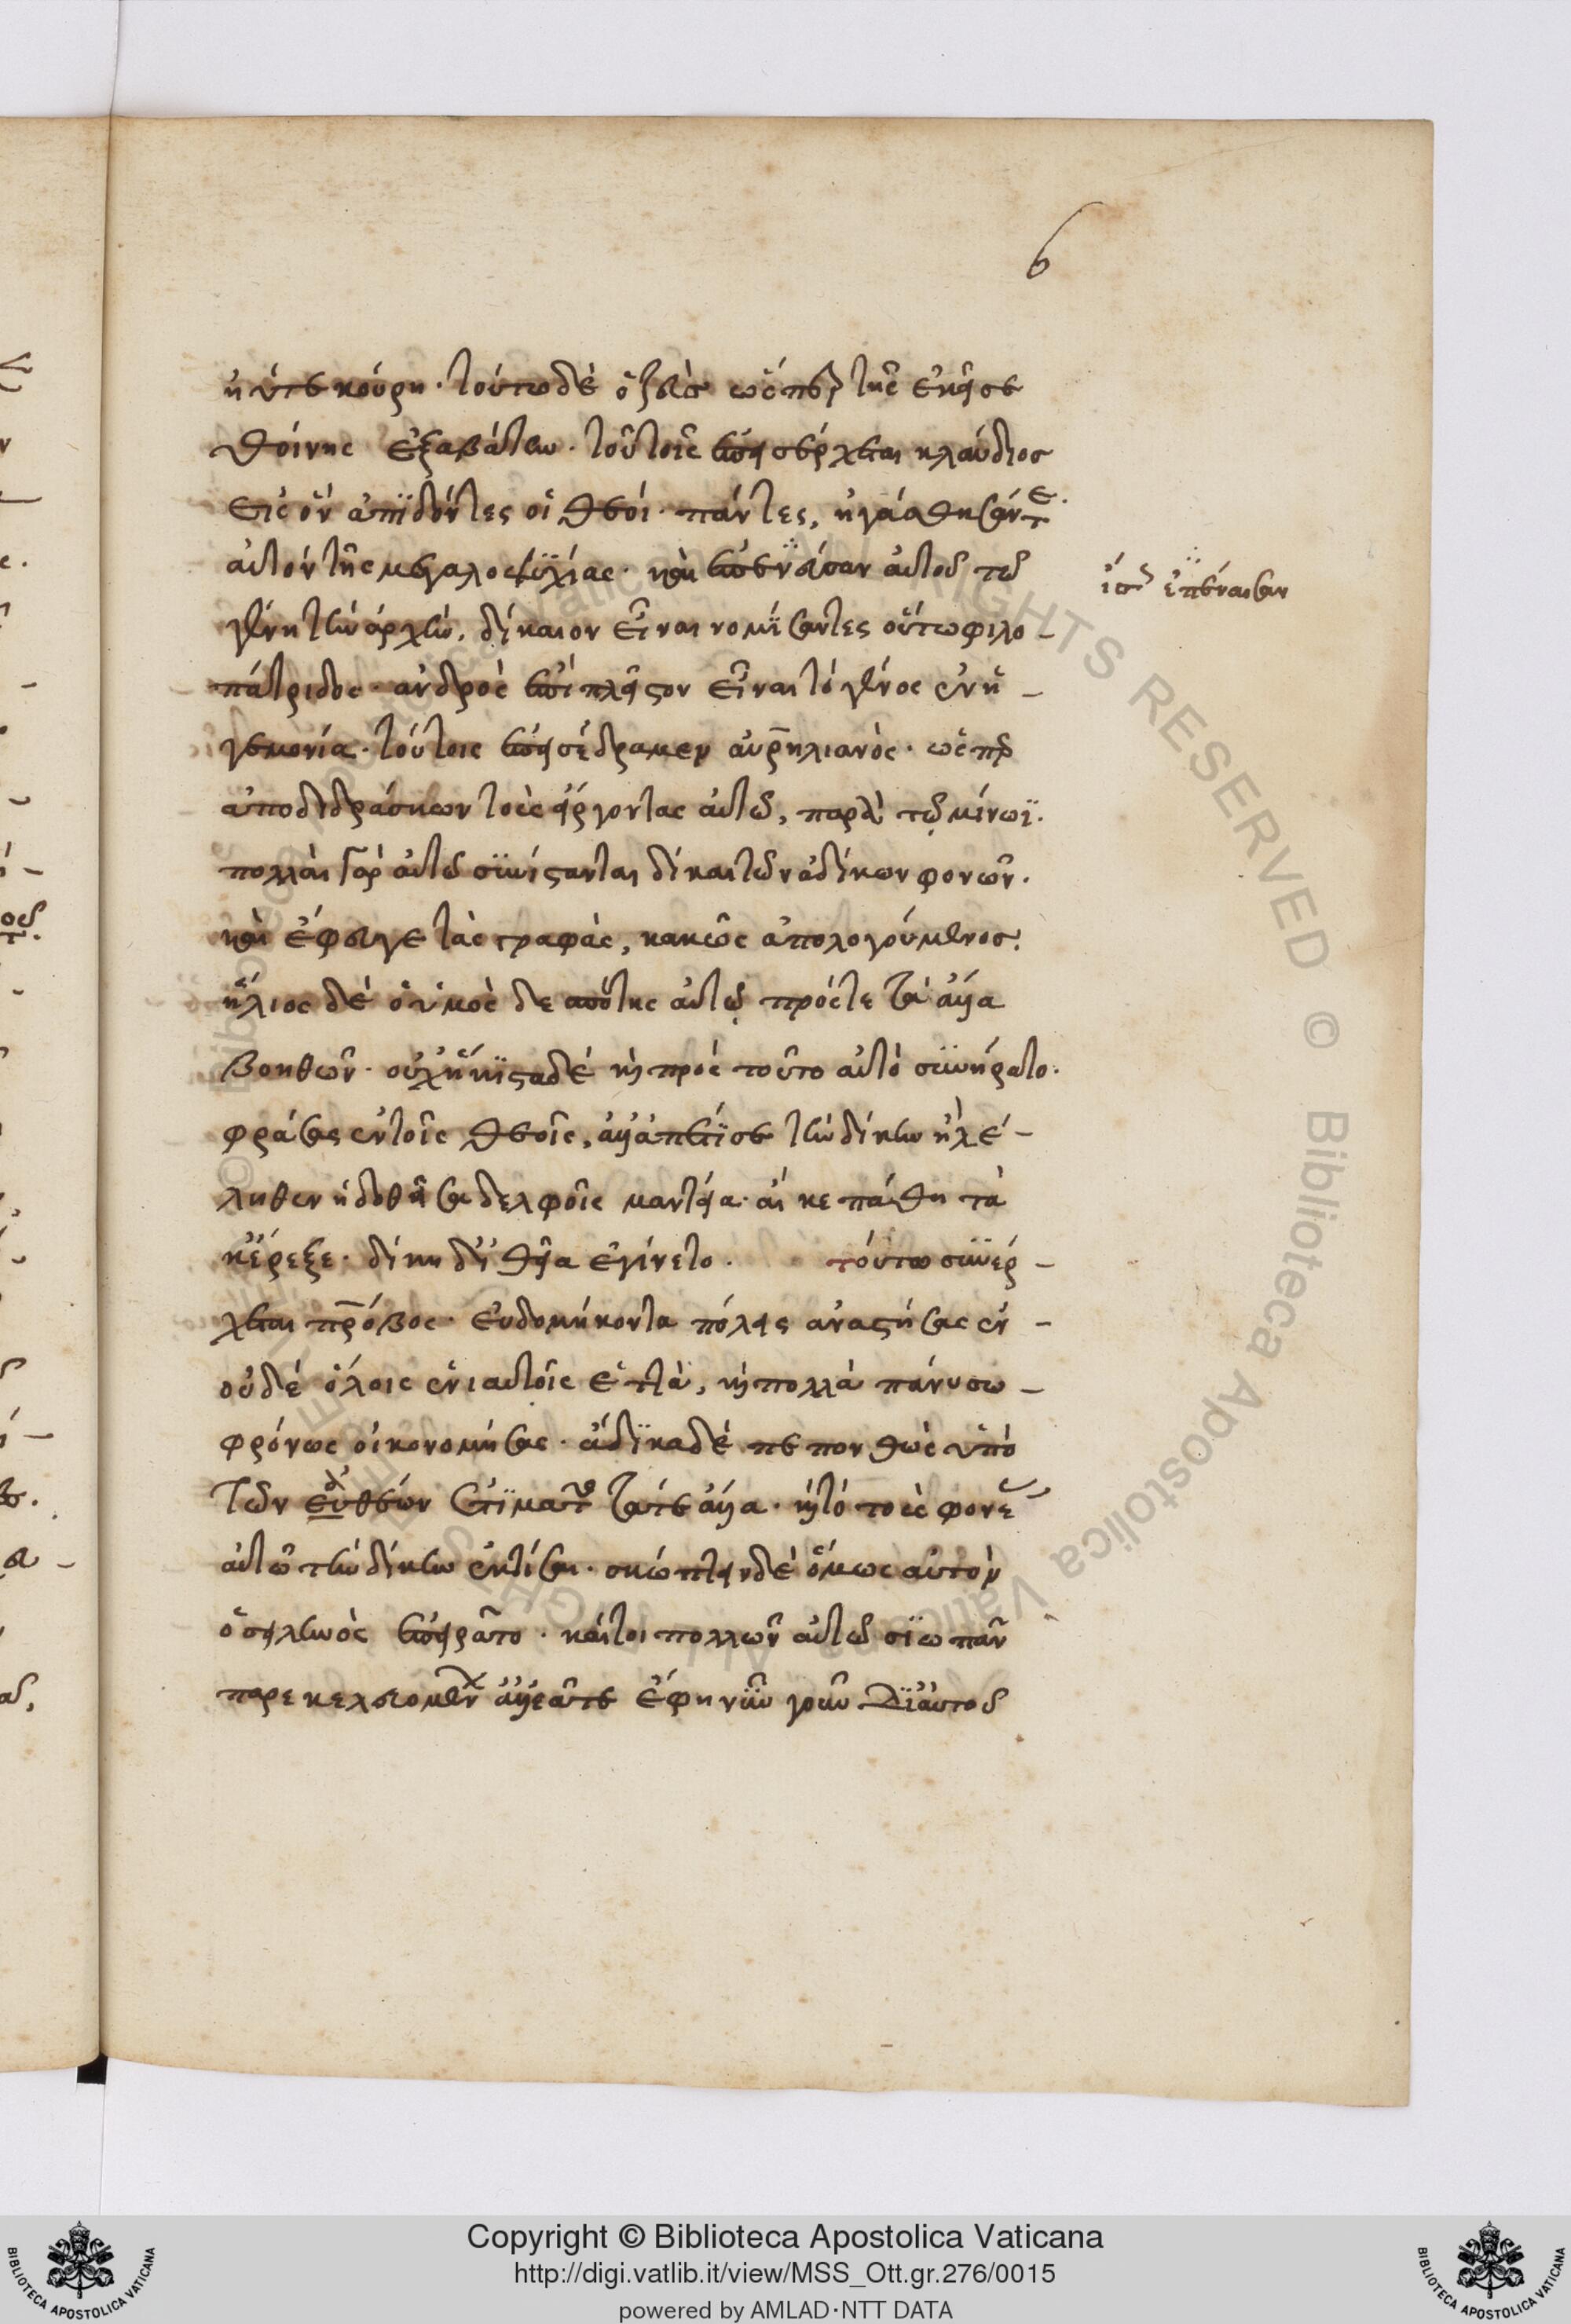 6
ἠύτε κούρη. τοῦτο δὲ ὁ ζεὺς ὥσπερ τῆς ἐκεῖσε
θοίνης ἐξαβάτω. τούτοις ἐπεισέρχεται κλαύδιος
εἰς ὃν ἀπϊδόντες οἱ θεοί. πάντες, ἠγάσθησάν τε.
αὐτὸν τῆς μεγαλοψϋχίας. καὶ ἐπένευσαν αὐτοῦ τῷ
ἴσως ἐπένευσαν
γένει τὴν ἀρχὴν. δίκαιον εἶναι νομΐσαντες οὕτω φιλο-
πάτριδος. ἀνδρὸς ἐπὶ πλεῖστον εἶναι τὸ γένος ἐν ἡ-
γεμονία. τούτοις ἐπεισέδραμεν αὐρηλιανὸς. ὥσπερ
ἀποδιδράσκων τοὺς εἴργοντας αὐτῶ, παρὰ τῷ μίνωϊ.
πολλαὶ γὰρ αὐτῶ συνίσταντο δίκαι τῶν ἀδίκων φονῶν.
καὶ ἔφευγε τὰς γραφὰς, κακῶς ἀπολογούμενος.
ἥλιος δὲ ὁ ἐμὸς δεσπότης αὐτῷ πρός τε τὰ ἄλλα
βοηθῶν. οὐχ ἥκϊστα δὲ καὶ πρὸς τοῦτο αὐτὸ συνήρατο.
φράσας ἐν τοῖς θεοῖς, ἀλλ' ἀπέτϊσε τὴν δίκην ἢ λέ-
ληθεν ἡ δοθεῖσα δελφοῖς μαντεία. αἴ κε πάθη τὰ
κ' ἔρεξε. δίκη δ' ἰθεῖα ἐγίνετο. τούτω συνέρ-
χεται πρόβος. ἑβδομήκοντα πόλεις ἀναστήσας ἐν-
οὐδὲ ὅλοις ἐνιαυτοῖς ἑπτὰ, καὶ πολλὰ πάνυ σω-
φρόνως οἰκονομήσας. ἄδϊκα δὲ πεπονθὼς ὑπὸ
τῶν ἀθέων ἐτϊμᾶτο τά τε ἄλλα. καὶ τὸ τοὺς φονέας
αὐτῶ τὴν δίκην ἐκτίσαι. σκώπτειν δὲ ὅμως αὐτὸν
ὁ σειληνὸς ἐπειρᾶτο. καίτοι πολλῶν αὐτῶ σϊωπᾶν
παρακελευομένων ἀλλ' ἐᾶτε ἔφη νῦν γοῦν δϊ' αὐτοῦ